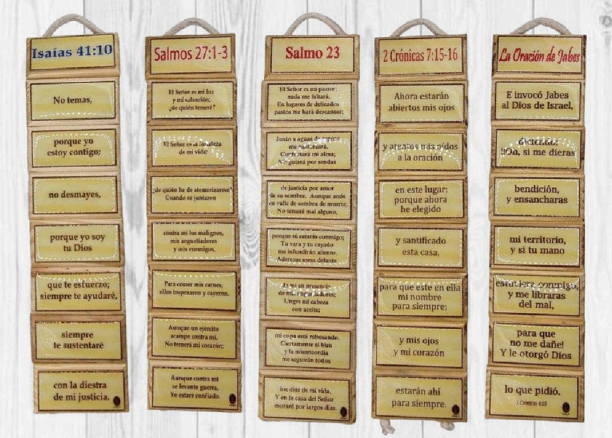 Isaías 41:10
No temas,
porque yo
estoy contigo;
no desmayes,
porque yo soy
tu Dios
que te esfuerzo;
siempre te ayudaré,
siempre
te sustentaré
con la diestra
de mi justicia.
Salmos 27:1-3
El Señor es mi luz
y mi salvación;
¿de quién temeré?
El Señor es la fortaleza
de mi vida;
¿de quién he de atemorizarme?
Cuando se juntaron
contra mí los malignos,
mis angustiadores
y mis enemigos,
Para comer mis carnes,
ellos tropezaron y cayeron.
Aunque un ejército
acampe contra mí,
No temerá mi corazón;
Aunque contra mí
se levante guerra,
Yo estaré confiado.
Salmo 23
El Señor es mi pastor;
nada me faltará.
En lugares de delicados
pastos me hará descansar;
Junto a aguas de reposo
me pastoreará.
Confortará mi alma;
Me guiará por sendas
de justicia por amor
de su nombre. Aunque ande
en valle de sombra de muerte,
No temeré mal alguno,
porque tú estarás conmigo;
Tu vara y tu cayado
me infundirán aliento.
Aderezas mesa delante
de mí
Unges mi cabeza
con aceite;
mi copa está rebosando.
Ciertamente el bien
y la misericordia
me seguirán todos
los días de mi vida,
Y en la casa del Señor
moraré por largos días.
2 Crónicas 7:15-16
Ahora estarán
abiertos mis ojos
y atentos mis oídos
a la oración
en este lugar;
porque ahora
he elegido
y santificado
esta casa,
para que esté en ella
mi nombre
para siempre;
y mis ojos
y mi corazón
estarán ahí
para siempre.
La Oración de Jabes
E invocó Jabes
al Dios de Israel,
diciendo:
si me dieras
bendición,
y ensancharas
mi territorio,
y si tu mano
estuviera conmigo,
y me libraras
del mal,
para que
no me dañe!
Y le otorgó Dios
lo que pidió.